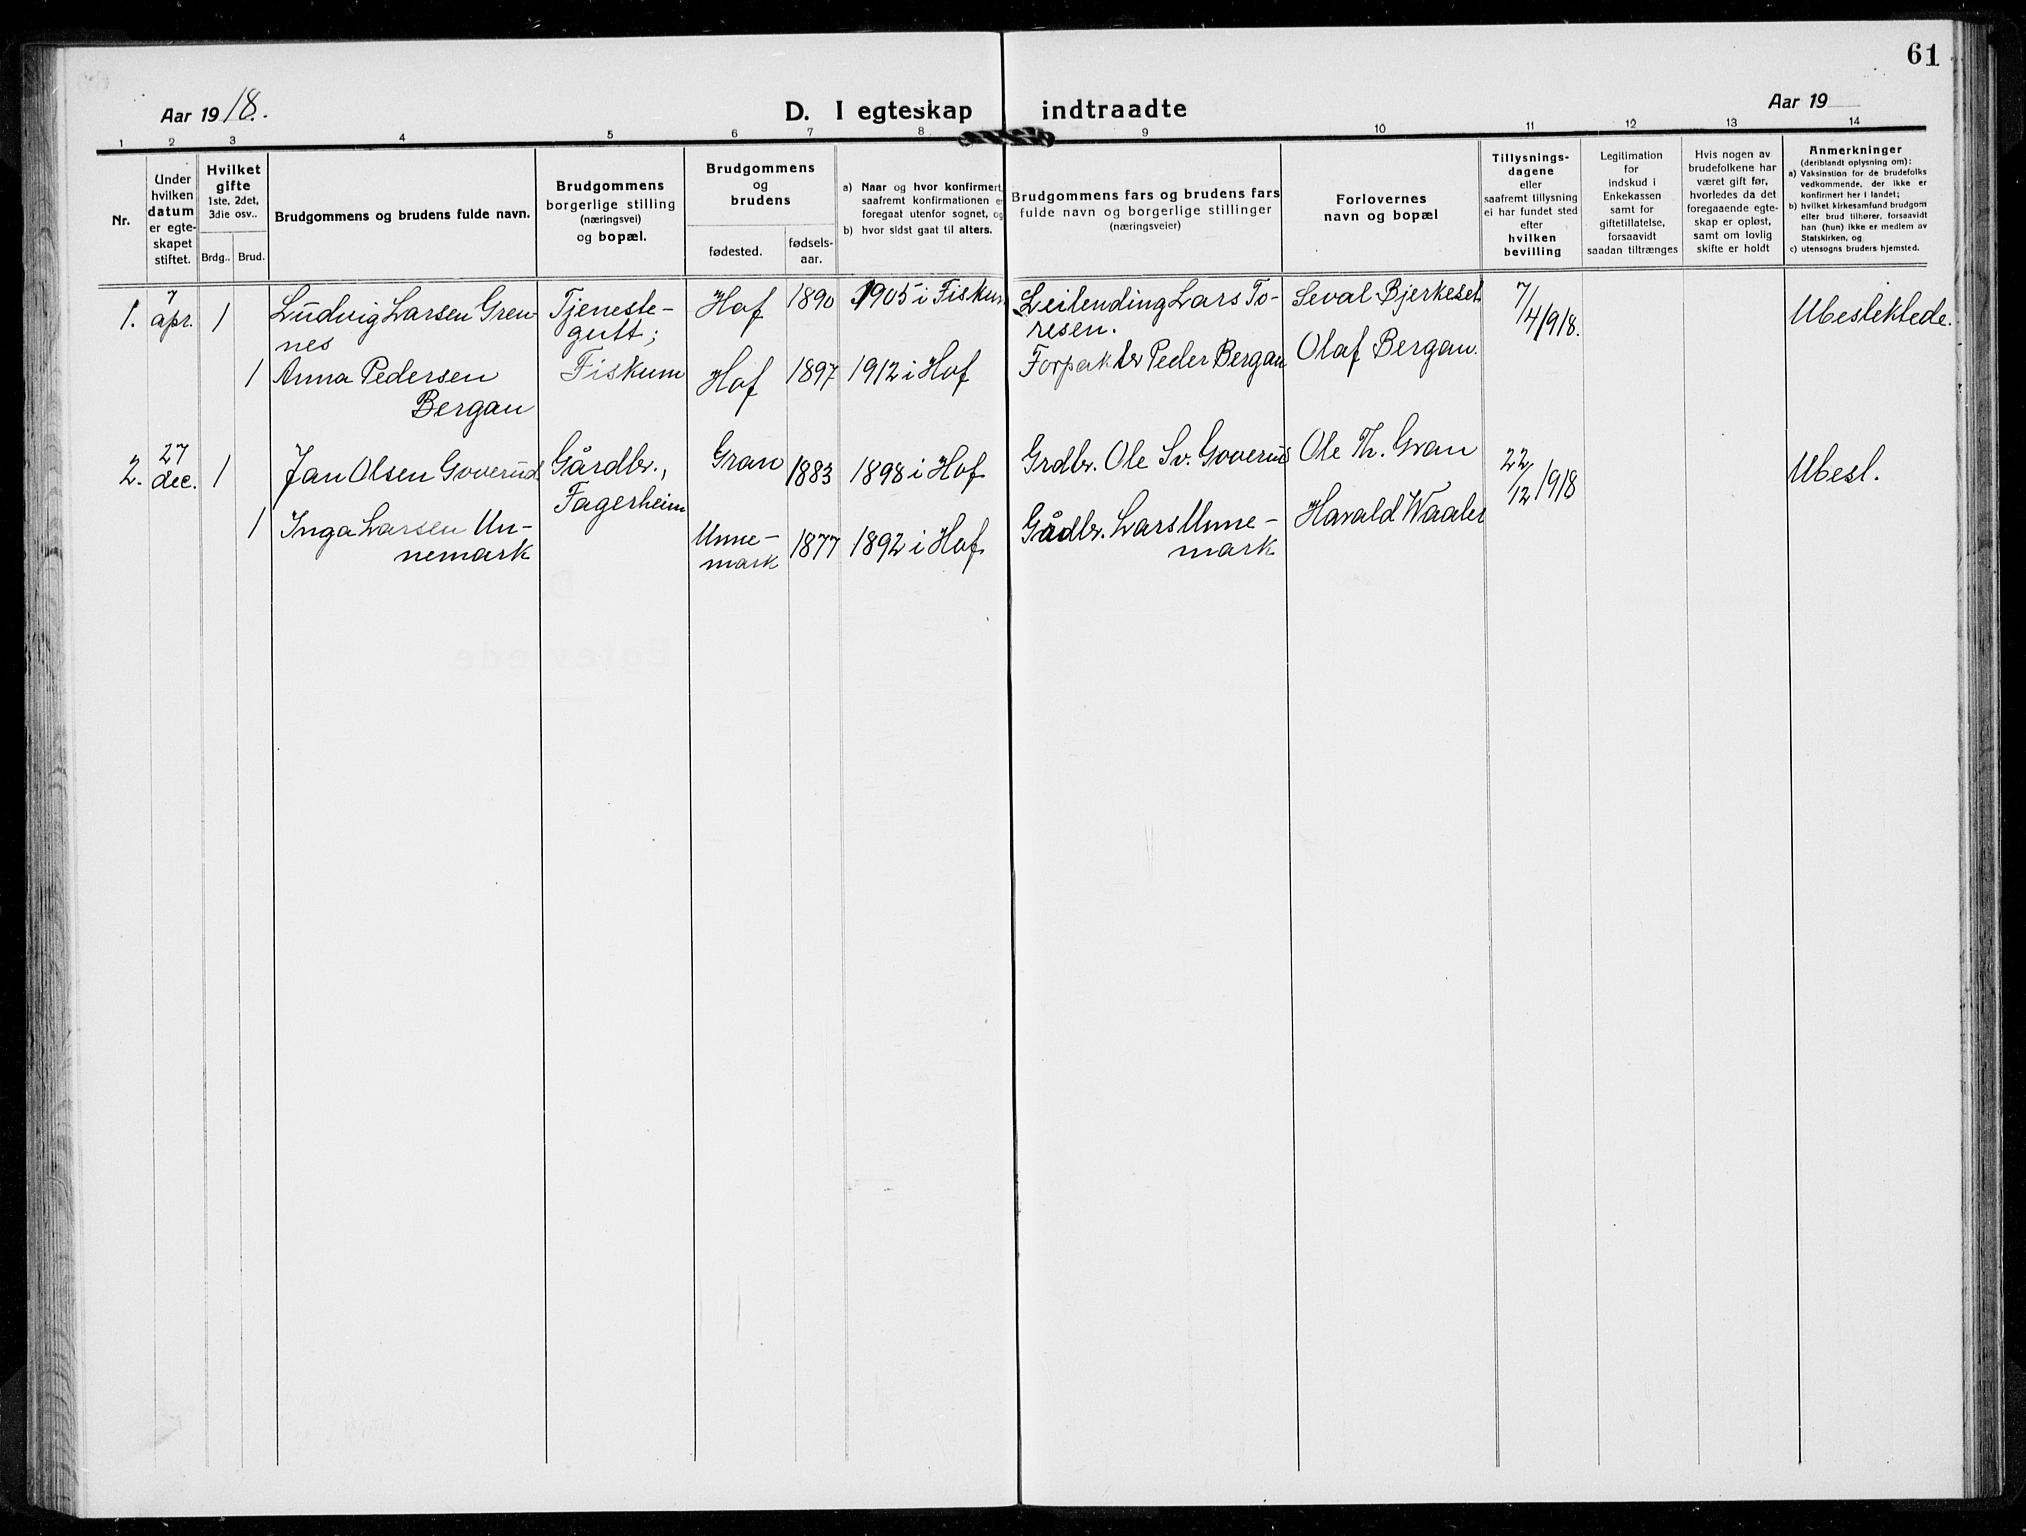 61
Aar 1918.
D. I egteskap indtraadte
Aar 19
1 2 3 4 5 6 7 8 9 10 11 12 13 14
Nr.
Under
hvilken
datum
er egte-
skapet
stiftet.
Hvilket
gifte
1ste, 2det,
3die osv..
Brdg..
Brud.
Brudgommens og brudens fulde navn.
Brudgommens
borgerlige stilling
(næringsvei)
og bopæl.
Brudgommens
og
brudens
fødested.
fødsels-
aar.
a) Naar og hvor konfirmert,
saafremt konfirmationen e
foregaat utenfor sognet, og
b) hvor sidst gaat til alters.
Brudgommens fars og brudens fars
fulde navn og borgerlige stillinger
(næringsveier)
Forlovernes
navn og bopæl
Tillysnings-
dagene
eller
saafremt tillysning
ei har fundet sted
efter
hvilken
bevilling
Legitimation
for
indskud i
Enkekassen
samt for
giftetillatelse,
forsaavidt
saadan tiltrænges
Hvis nogen av
brudefolkene har
været gift før,
hvorledes da det
foregaaende egte-
skap er opløst,
samt om lovlig
skifte er holdt
Anmerkninger
(deriblandt oplysning om):
a) Vaksination for de brudefolks
vedkommende, der ikke er
konfirmert her i landet;
b) hvilket kirkesamfund brudgom
eller brud tilhører, forsaavidt
han (hun) ikke er medlem av
Statskirken, og
c) utensogns bruders hjemsted.
1.
7
apr.
1
Ludvig Larsen Gren
nes
Tjeneste-
gutt;
Fiskum
Hof
1890
1905 i Fiskum
Leilending Lars To-
resen.
Seval Bjerkeset
7/4 1918.
Ubeslektede.
1
Anna Pedersen
Bergan
Hof
1897
1912 i Hof
Forpakter Peder Bergan
Olaf Bergan.
2.
27
dec.
1
Jan Olsen Goverud
Gårdbr.,
Fagerheim
Gran
1883
1898 i Hof
Grdbr. Ole Sv. Goverud
Ole Th. Gran
22/12 1918
Ubesl.
1
Inga Larsen Un-
nemark
Unne-
mark
1877
1892 i Hof
Gårdbr. Lars Unne-
mark
Harald Waaler